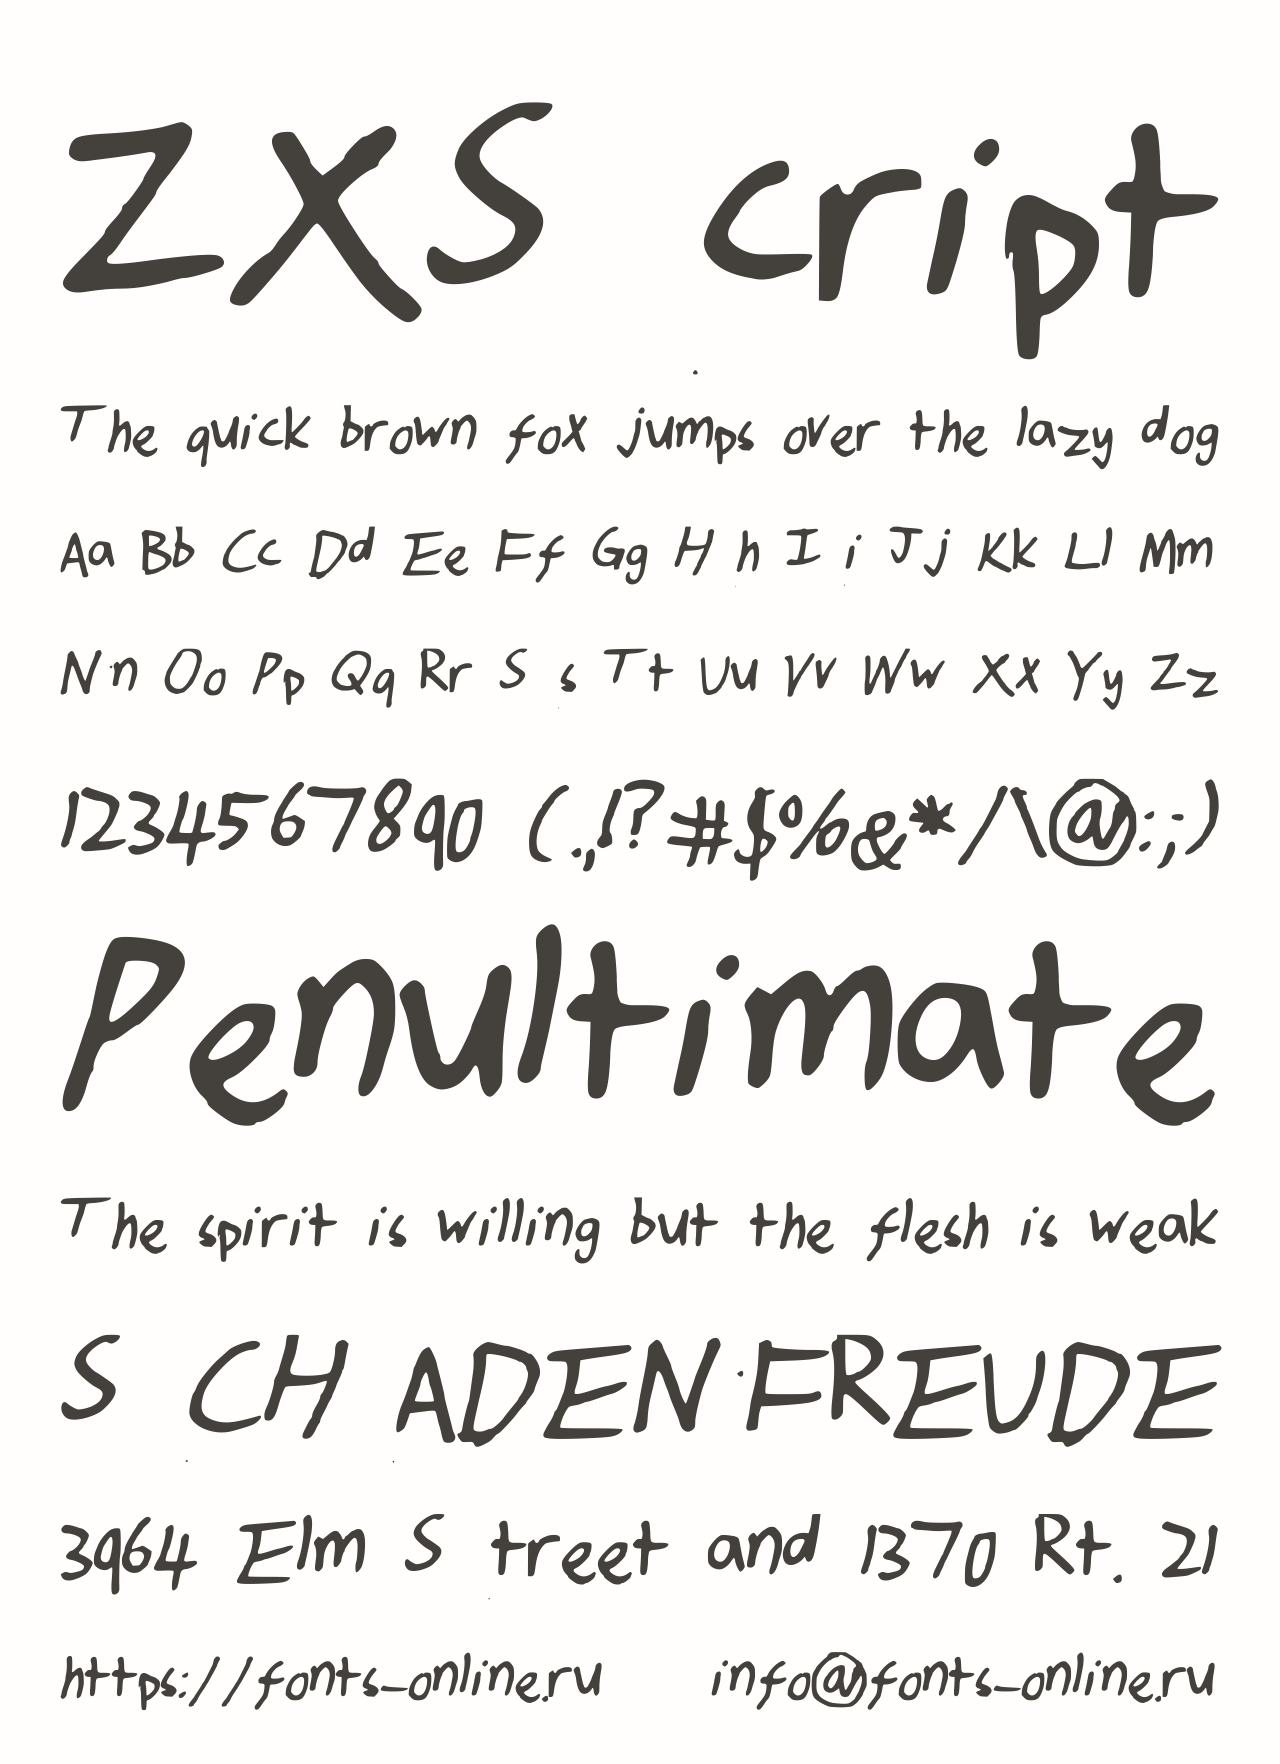 ZXS cript
The quick brown fox jumps over the lazy dog
Aa Bb Cc Dd Ee Ff Gg H h I i Jj Kk Ll Mm
Nn Oo Pp Qq Rr S s Tt Uu Vv Ww Xx Yy Zz
1234567890 (.,!?#$%&*/\@:;)
Penultimate
The spirit is willing but the flesh is weak
S CH ADEN FREUDE
3964 Elm S treet and 1370 Rt. 21
https://fonts-online.ru info@fonts-online.ru